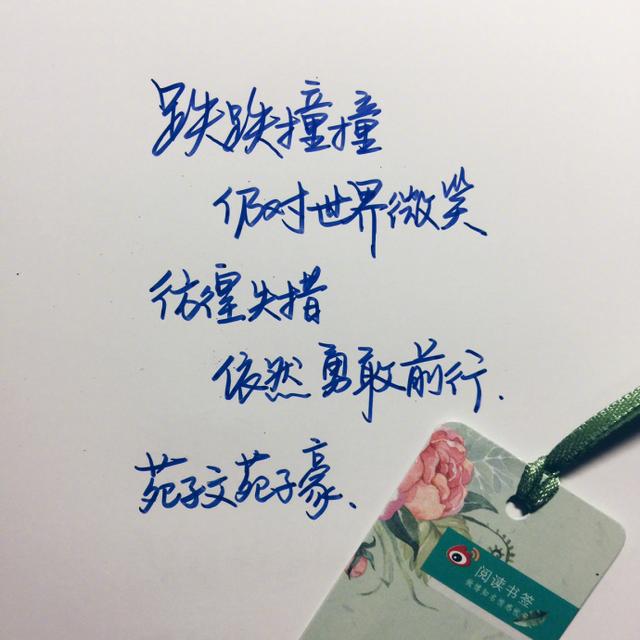 跌跌撞撞
仍对世界微笑
彷徨失措
依然勇敢前行.
苑子文苑子豪、
阅读书签